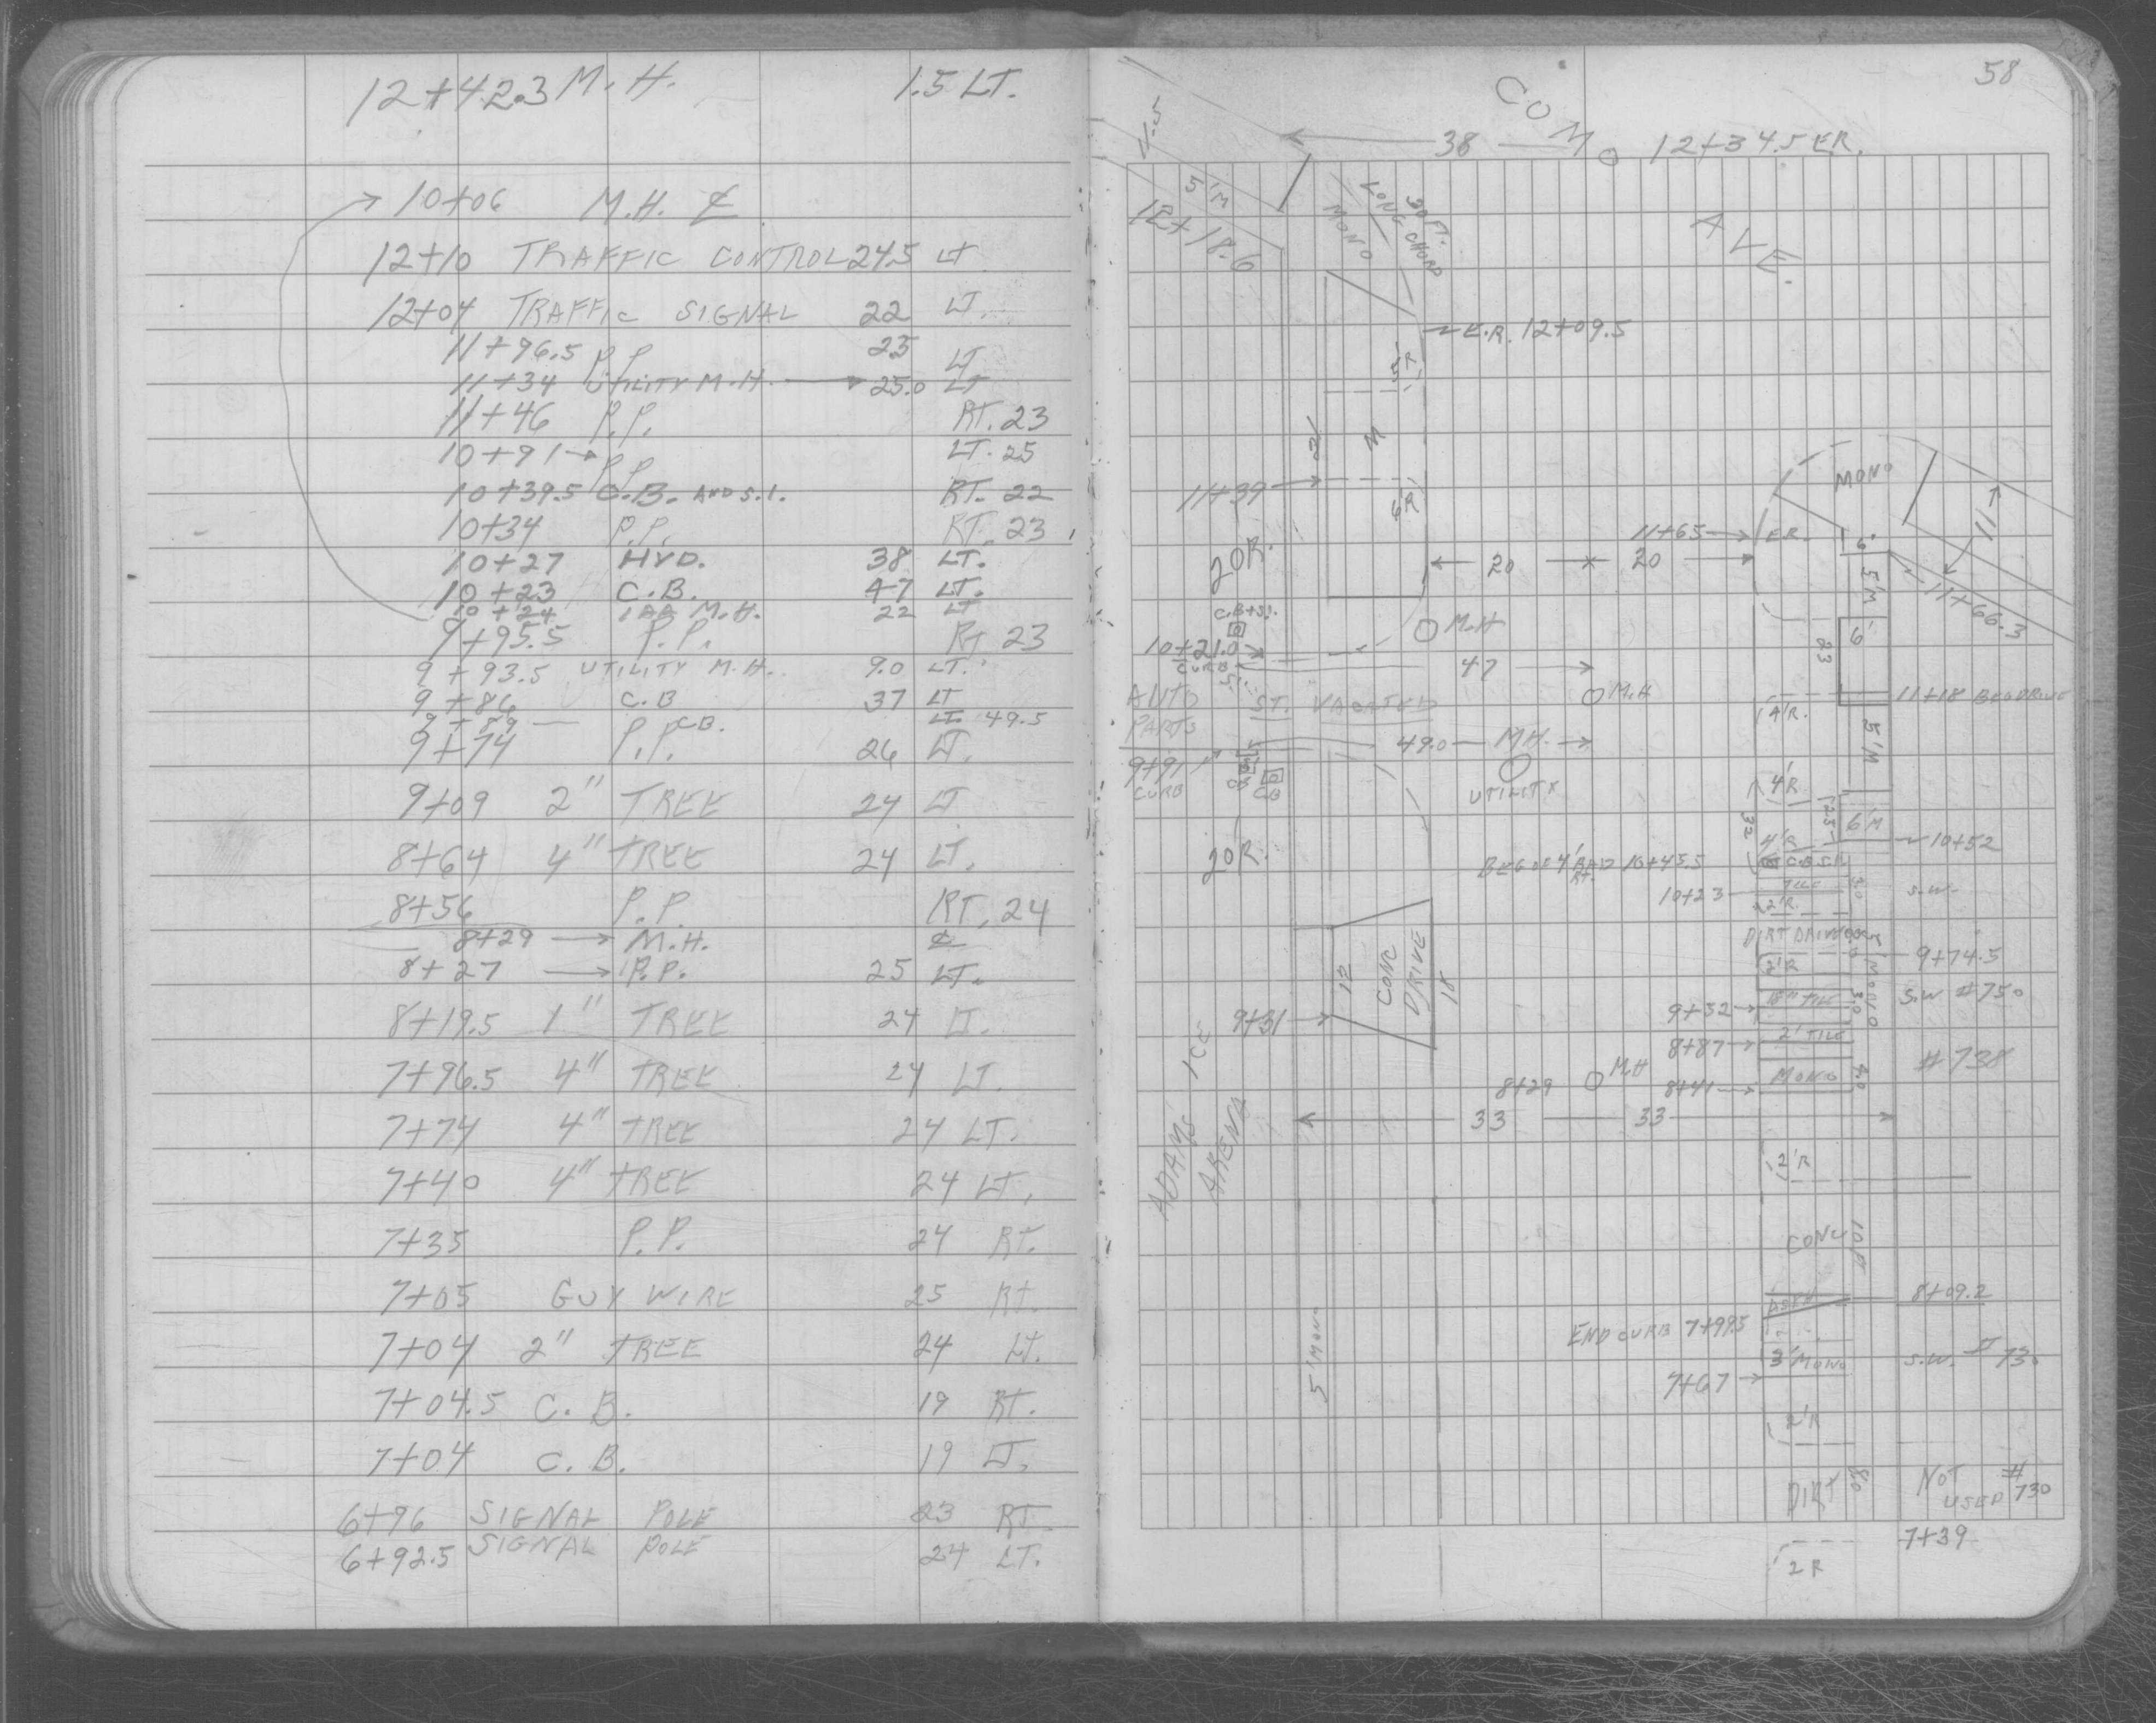 12+42.3 M.H. 1.5 LT.
10+06 M.H. ₵
12+10 TRAFFIC CONTROL 24.5 LT
12+04 TRAFFIC SIGNAL 22 LT.
11+96.5 P.P. 23 LT
11+34 UTILITY M.H. → 25.0 LT
11+46 P.P. RT. 23
10+91 → P.P. LT. 25
10+39.5 C.B. AND S.I. RT. 22
10+34 P.P. RT. 23
10+27 HYD. 38 LT.
10+23 C.B. 47 LT.
10+24 M.H. 22 LT
9+95.5 P.P. RT 23
9+93.5 UTILITY M.H. 9.0 LT.
9+86 C.B 37 LT
9+89 — C.B. LT. 49.5
9+74 P.P. 26 LT.
9+09 2" TREE 24 LT
8+64 4" TREE 24 LT.
8+56 P.P. RT. 24
8+29 → M.H. ₵
8+27 → P.P. 25 LT.
8+19.5 1" TREE 24 LT.
7+96.5 4" TREE 24 LT.
7+74 4" TREE 24 LT.
7+40 4" TREE 24 LT.
7+35 P.P. 24 RT.
7+05 GUY WIRE 25 RT.
7+04 2" TREE 24 LT.
7+04.5 C.B. 19 RT.
7+04 C.B. 19 LT.
6+96 SIGNAL POLE 23 RT
6+92.5 SIGNAL POLE 24 LT.
58
COMO AVE.
38
12+34.5 ER.
5'M
12+18.6
MONO
30 FT.
LONG CHORD
E.R. 12+09.5
5'R
12
M
11+39
6'R
MONO
11
11+65 → ER.
20R.
20 20
6
5'M
11+66.3
C.B+S.I.
M.H
6
23
10+21.0
CURB
47
M.H
4'R.
11+18 BEG DRIVE
AUTO
PARTS
ST. VACATED
49.0 M.H.
5'M
9+91
CURB
CB
C.B
UTILITY
4'R
32
6 M
10+52
20R.
BEG OF 4' RAD 10+45.5
RT.
C.B S.I.
10+23
TILE
S.W.
2'R.
DIRT DRIVE
CONC
DRIVE
12
18
2'R
9+74.5
MONO
9+31
9+32
18" TILE
3.0
S.W #750
8+87
2' TILE
8+29
M.H
8+41
MONO
4.0
#738
33 33
ADAMS ICE
ARENA
2'R
CONC
8+09.2
END CURB 7+99.5
5' MONO
3' MONO
S.W. # 730
7+67
2'R
DIRT
8.0
NOT
USED #730
7+39
2 R